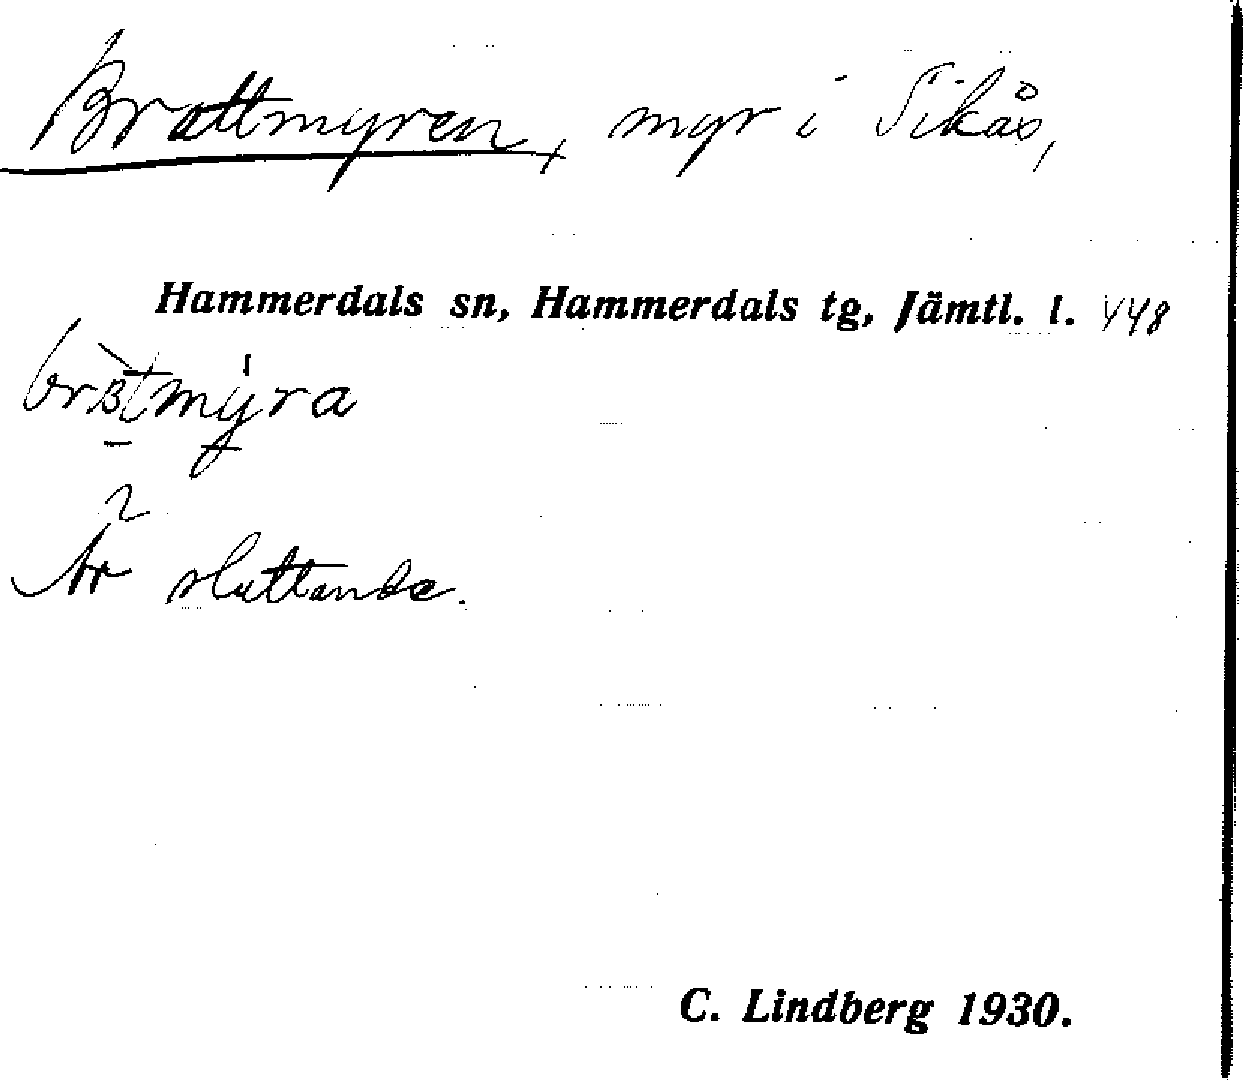 Brattmyren, myr i Sikås,
Hammerdals sn, Hammerdals tg, Jämtl. l. 448
Är sluttande.
C. Lindberg 1930.